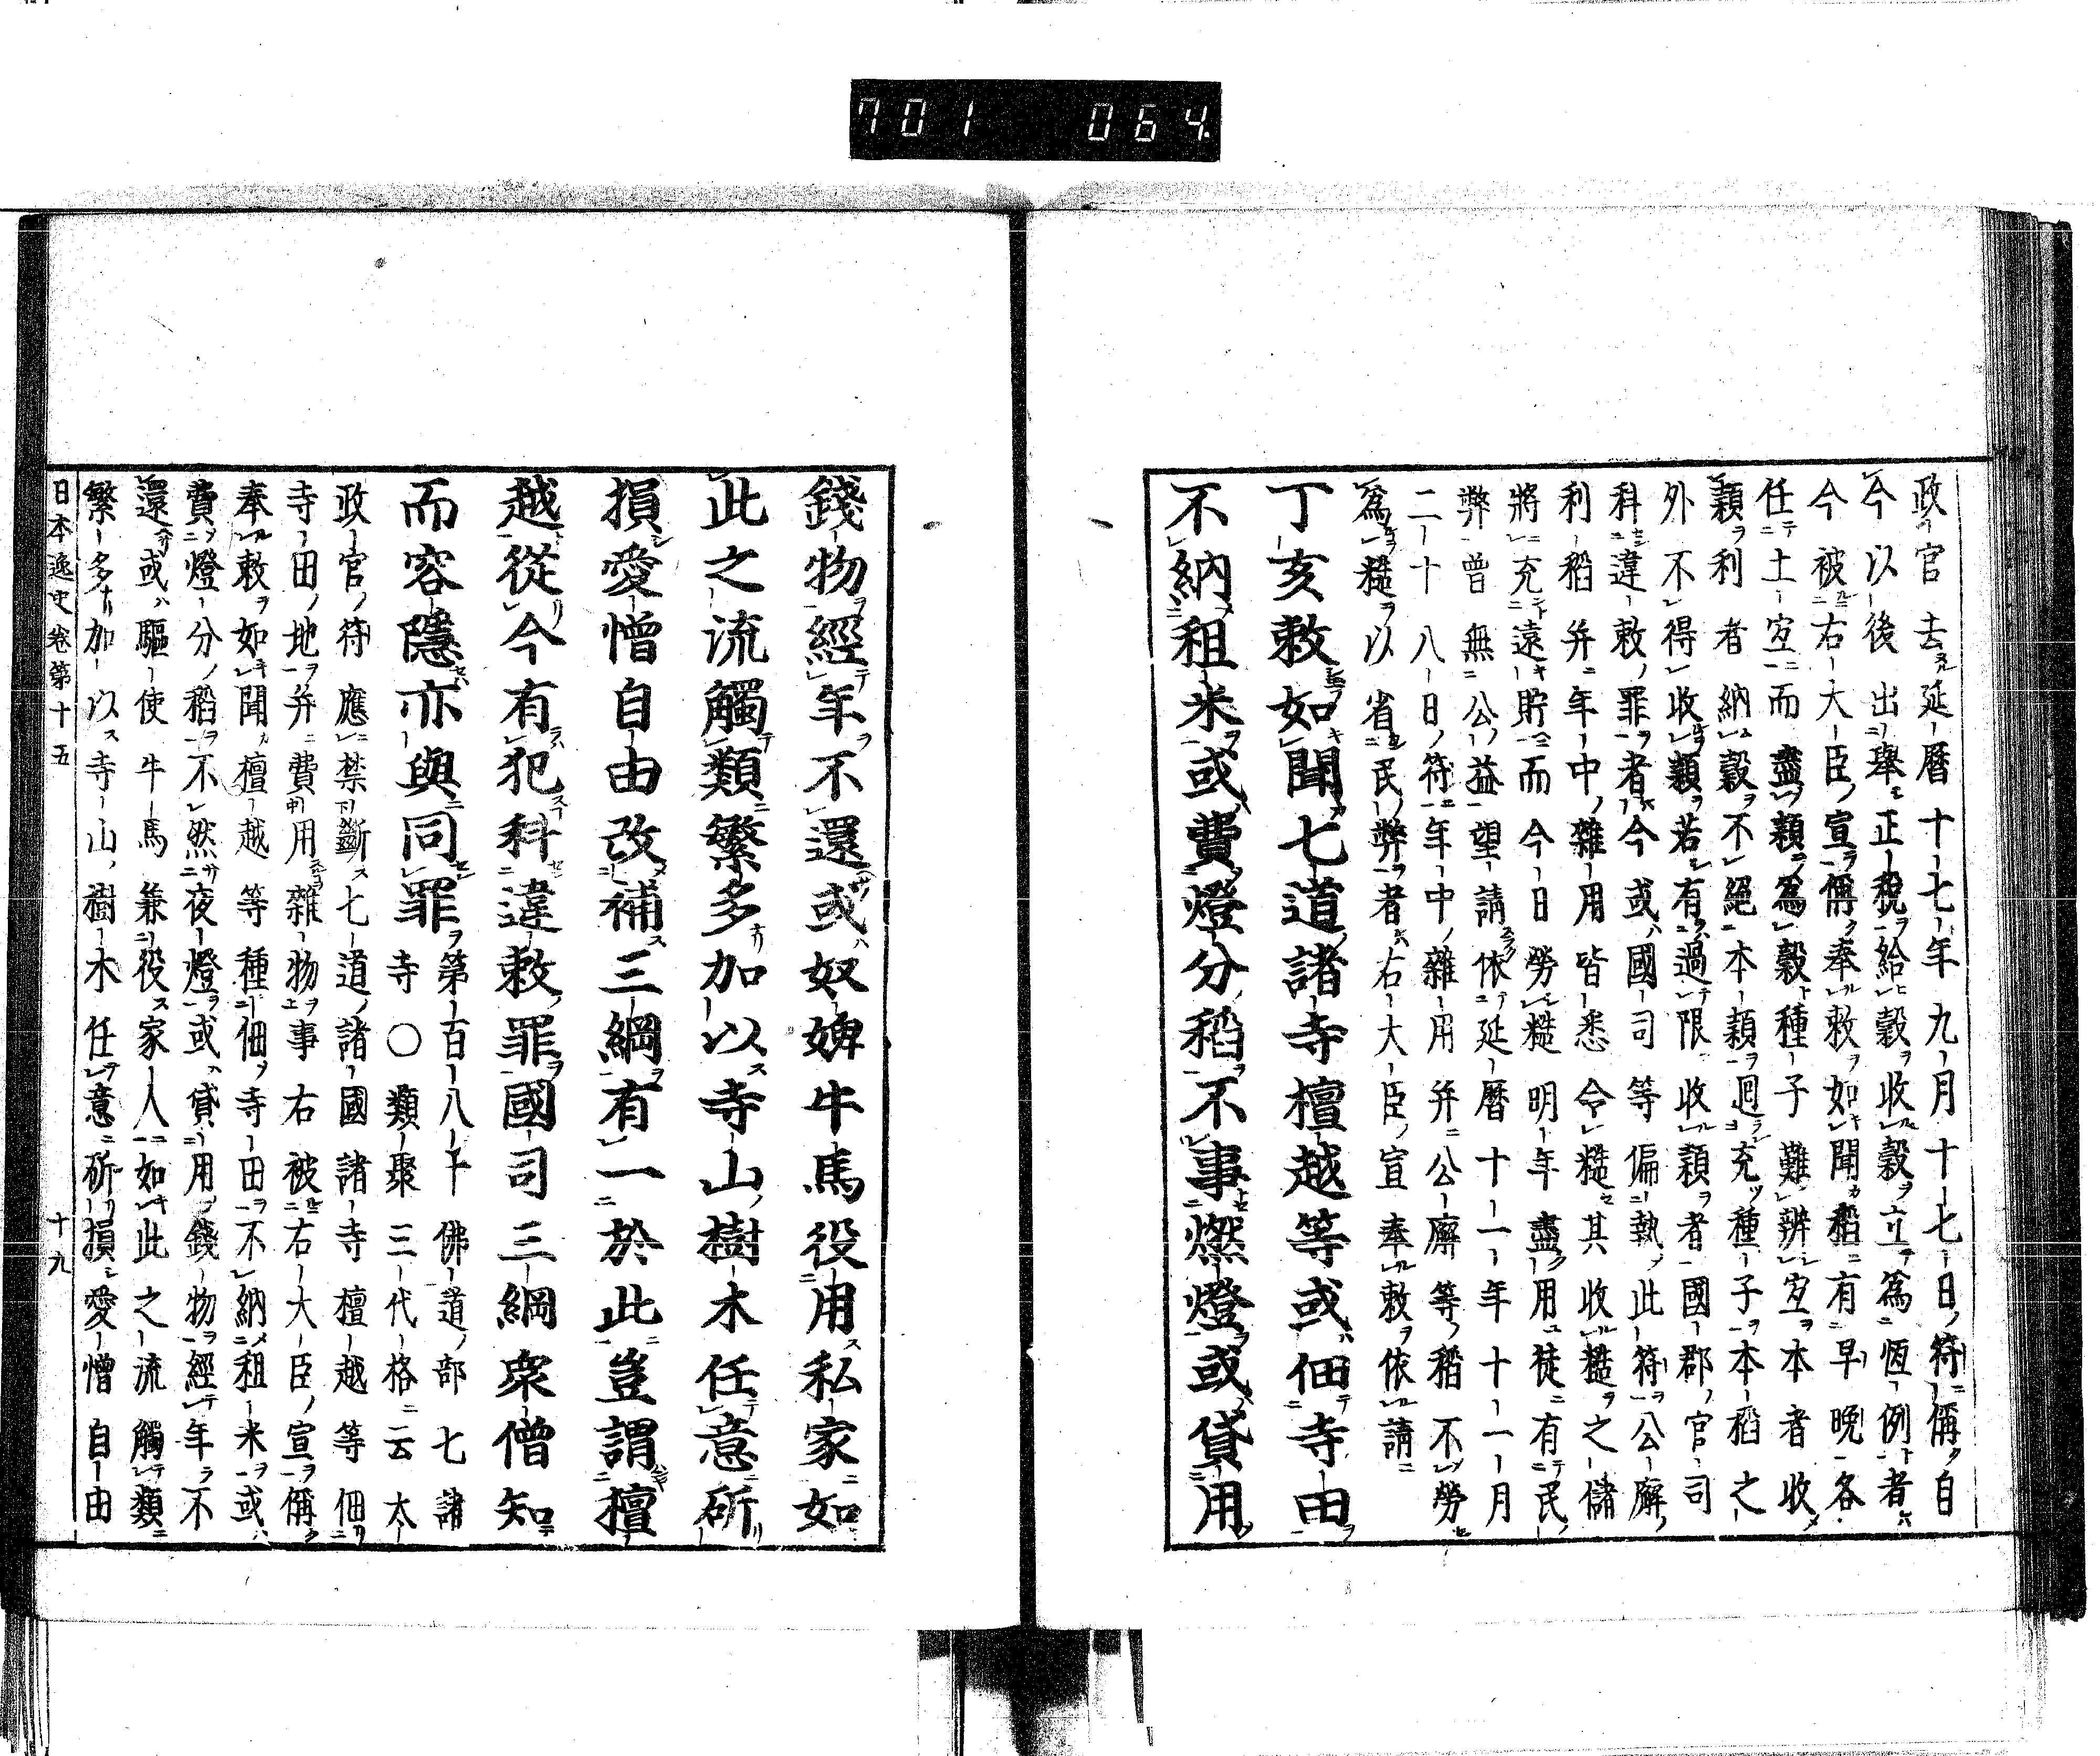 701 064.
政官去延曆十七年九月十七日符偁自
今以後出擧正税給穀收穀立爲恆例者
今被右大臣宣偁奉敕如聞稻有早晩各
任土宜而盡穎爲穀種子難辨宜本者收
穎利者納穀不絕本穎迴充種子本稻之
外不得收穎若有過限收穎者國郡官司
科違敕罪者今或國司等偏執此符公廨
利稻幷年中雜用皆悉令糙其收糙之儲
將充遠貯而今日勞糙明年盡用徒有民
弊曾無公益望請依延曆十一年十一月
二十八日符年中雜用幷公廨等稻不勞
爲糙以省民弊者右大臣宣奉敕依請
丁亥敕如聞七道諸寺檀越等或佃寺田
不納租米或費燈分稻不事燃燈或貸用
錢物經年不還或奴婢牛馬役用私家如
此之流觸類繁多加以寺山樹木任意斫
損愛憎自由改補三綱有一於此豈謂檀
越從今有犯科違敕罪國司三綱衆僧知
而容隱亦與同罪第百八十佛道部七諸
寺○類聚三代格云太
政官符應禁斷七道諸國諸寺檀越等佃
寺田地幷費用雜物事右被右大臣宣偁
奉敕如聞檀越等種佃寺田不納租米或
費燈分稻不然夜燈或貸用錢物經年不
還或驅使牛馬兼役家人如此之流觸類
繁多加以寺山樹木任意斫損愛憎自由
日本逸史卷第十五 十九